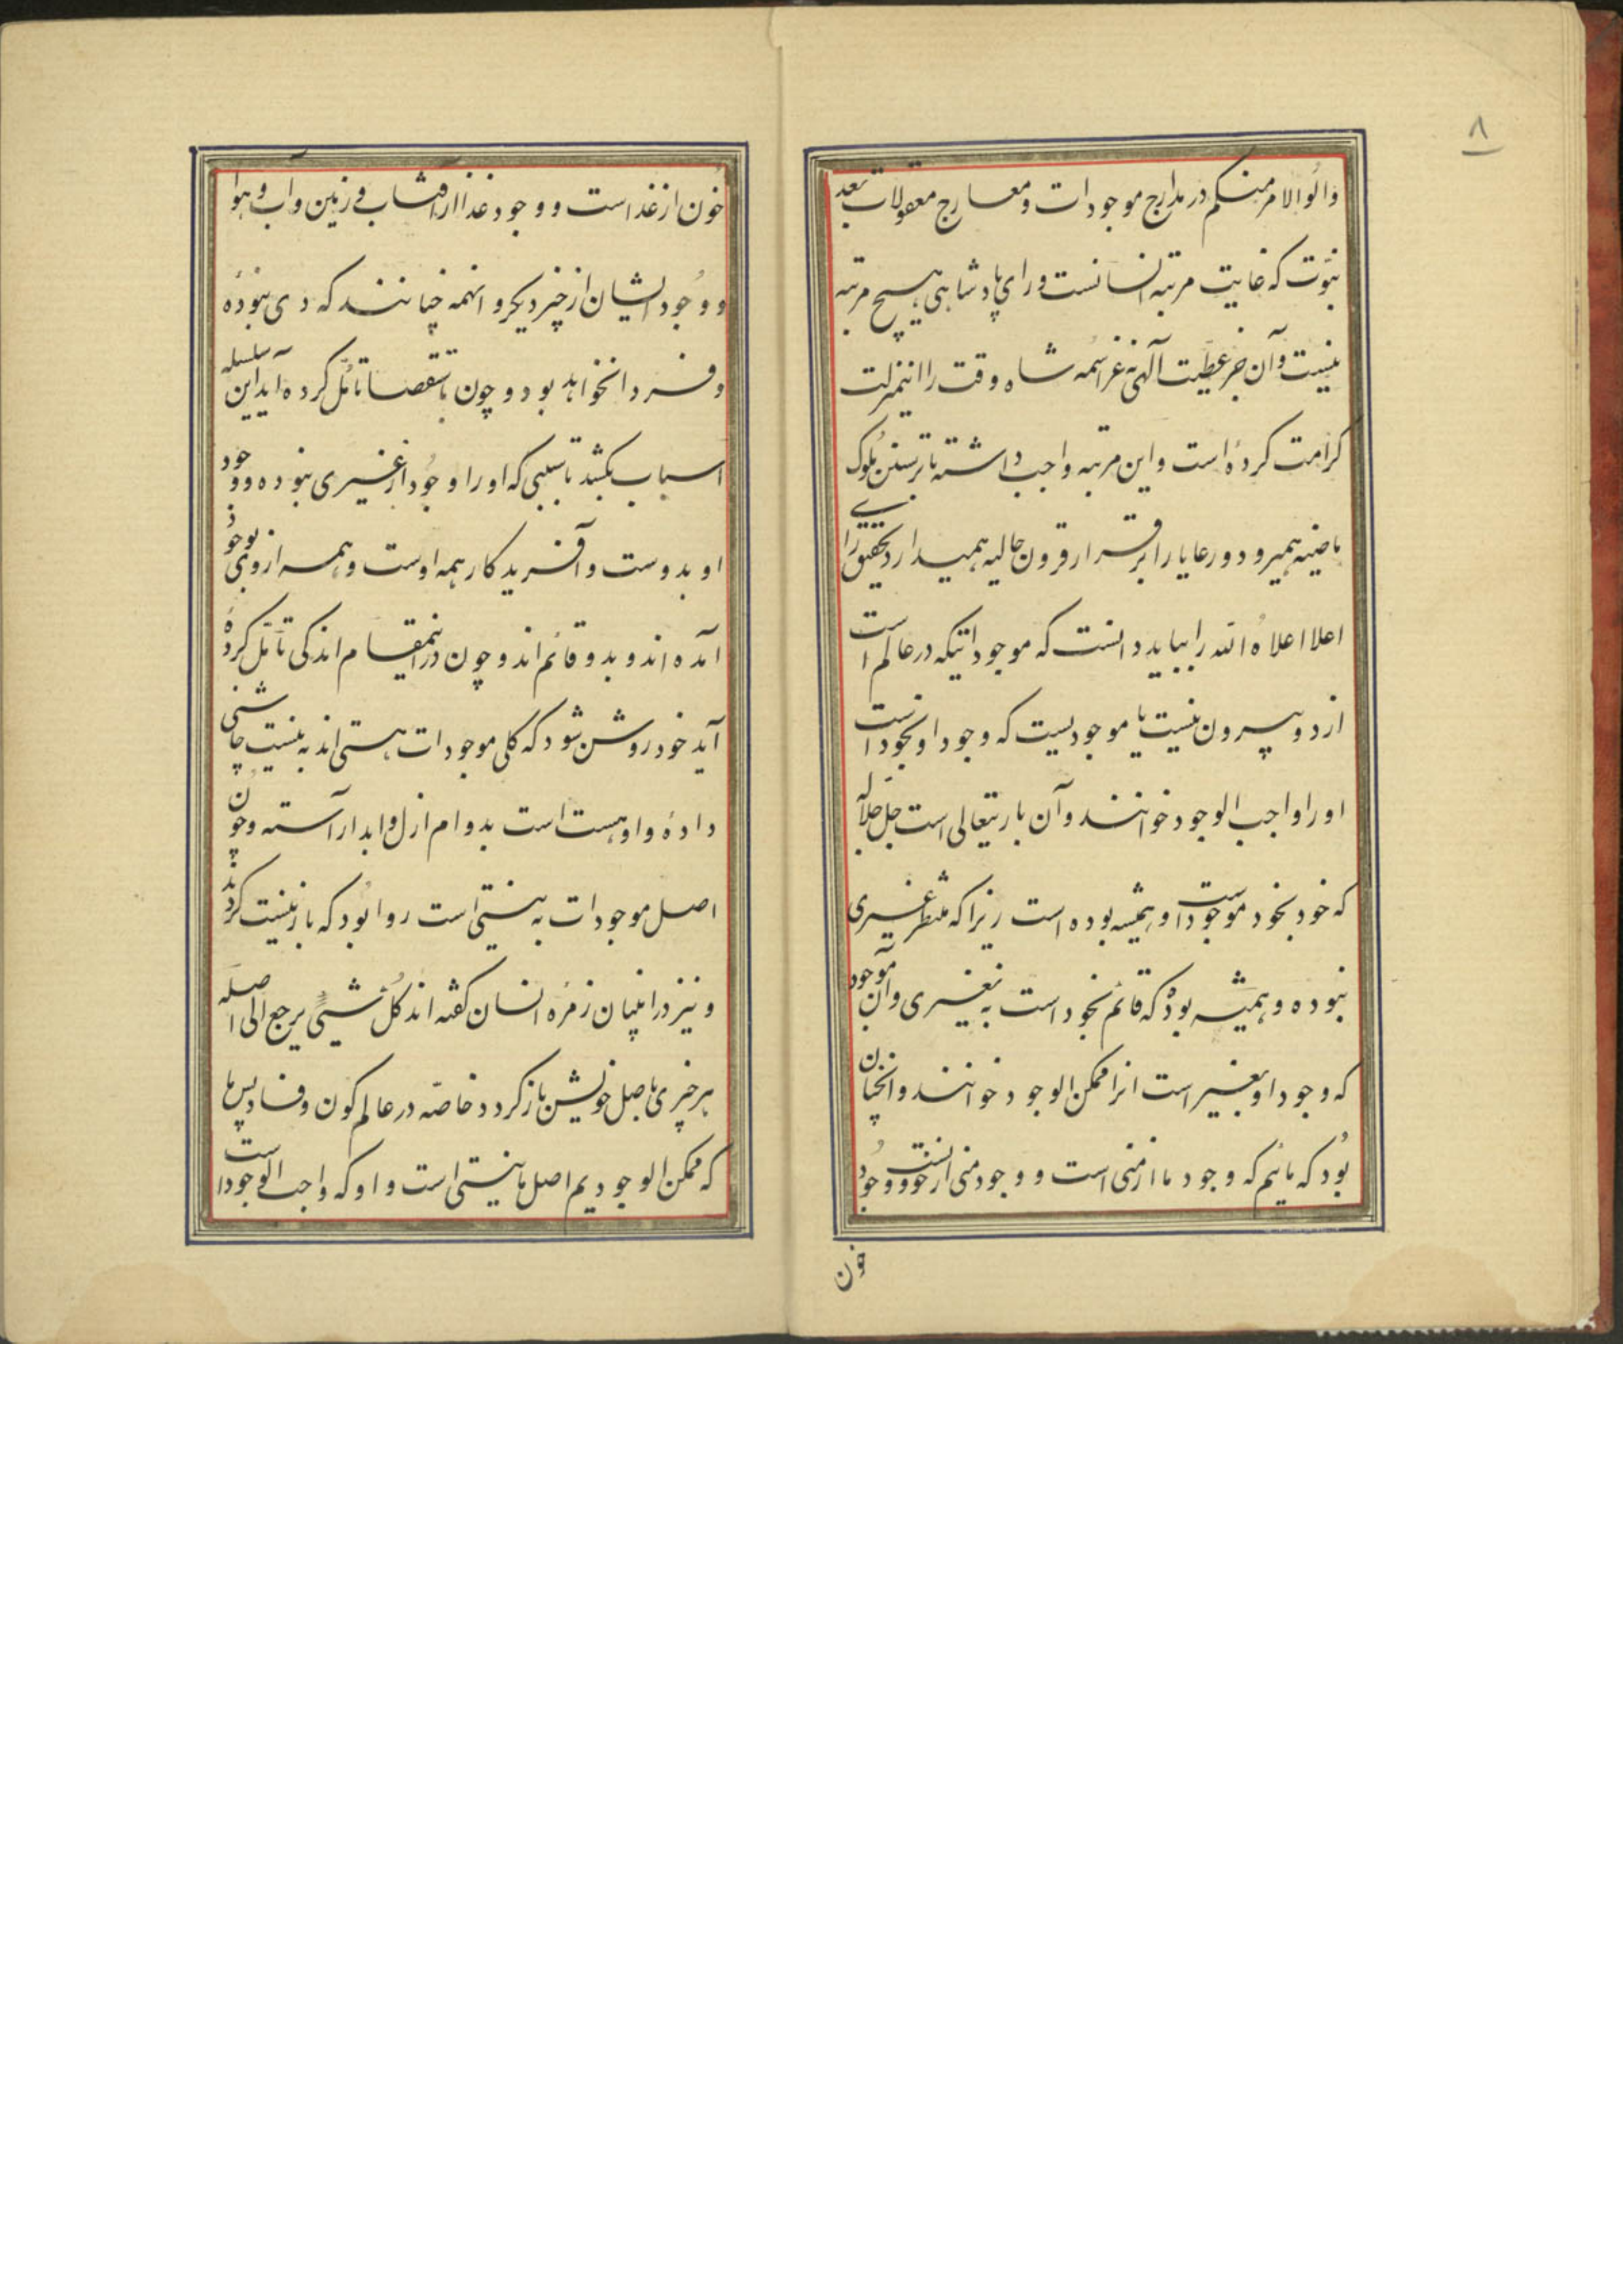 ۸
والوالامر منکم در مدارج موجودات و معارج معقولات بعد
نبوّت که غایت مرتبه انسانست ورای پادشاهی هیچ مرتبه
نیست و آن جز عطیّت آلهی نه عزاسمه شاه وقت را اینمنزلت
کرامت کرده است و این مرتبه واجب داشته تا بر سنن ملوک
ماضیه همیرود و رعایا را بر قرار قرون خالیه همیدارد تحقیق رای
اعلا اعلاه الله را بباید دانست که موجوداتیکه در عالم است
از دو بیرون نیست یا موجودیست که وجود او بخود است
او را واجب الوجود خوانند و آن باریتعالی است جل جلاله
که خود بخود موجود است و همیشه بوده است زیرا که منتظر غیری
نبوده و همیشه بود که قائم بخود است به بغیری و آن موجود
که وجود او بغیر است انرا ممکن الوجود خوانند و انچنان
بود که مائیم که وجود ما از منی است و وجود منی از خونست و وجود
خون
خون از غذاست و وجود غذا از آفتاب و زمین و آب و هوا
و وجود ایشان از چیز دیکر و اینهمه چنانند که دی نبوده
و فردا نخواهد بود و چون باستقصا تامّل کرده آید این سلسله
اسباب بکشد تا سببی که او را وجود از غیری نبوده و وجود
او بدوست و آفریدکار همه اوست و همه از وی بوجود
آمده اند و بدو قائم اند و چون در اینمقام اندکی تامّل کرده
آید خود روشن شود که کلی موجودات هستی اند به نیست چاشنی
داده و او هست است بدوام ازل و ابد آراسته و چون
اصل موجودات به نیستی است روا بود که باز نیست کردند
و نیز در ابنیان زمره انسان کفته اند کلّ شیئیٍ یرجع الی اصله
هر چیزی باصل خویش باز کردد خاصّه در عالم کون و فساد پس ما
که ممکن الوجودیم اصل ما نیستی است و او که واجب الوجود است